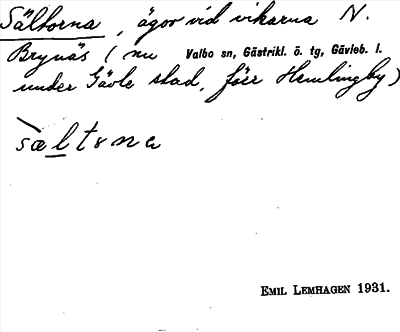 Sältorna, ägor vid vikarna N.
Brynäs (nu Valbo sn, Gästrikl. ö. tg, Gävleb. l.
under Gävle stad, förr Hemlingby)
sæltɷna
EMIL LEMHAGEN 1931.